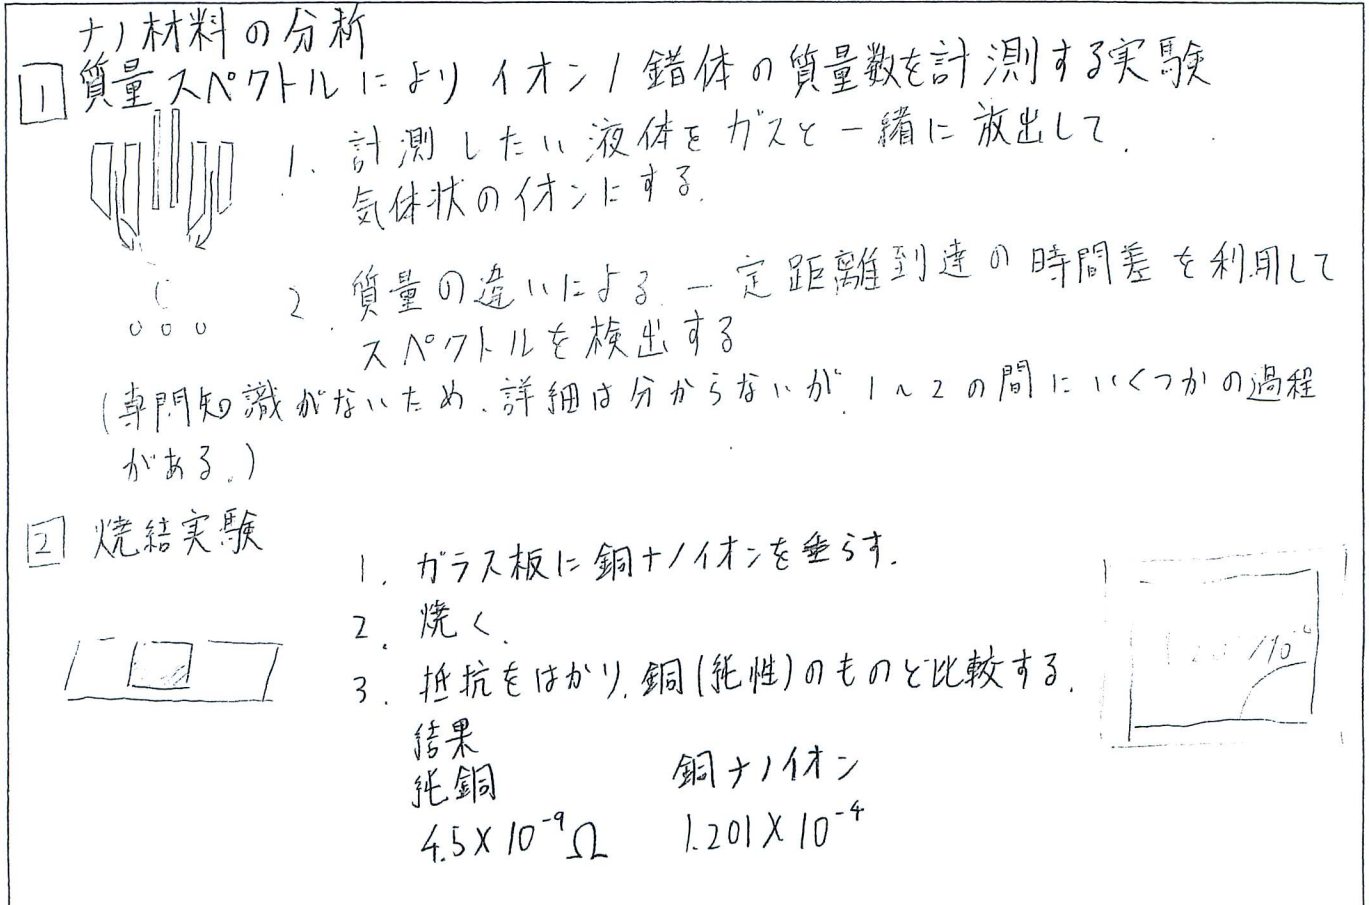 ナノ材料の分析
1 質量スペクトルによりイオン/錯体の質量数を計測する実験
1. 計測したい液体をガスと一緒に放出して、
気体状のイオンにする。
2. 質量の違いによる、一定距離到達の時間差を利用して
スペクトルを検出する
(専門知識がないため、詳細は分からないが、1~2の間にいくつかの過程
がある。)
2 焼結実験
1. ガラス板に銅ナノイオンを垂らす。
2. 焼く。
3. 抵抗をはかり、銅(純性)のものと比較する。
結果
純銅 銅ナノイオン
4.5×10⁻⁹Ω 1.201×10⁻⁴